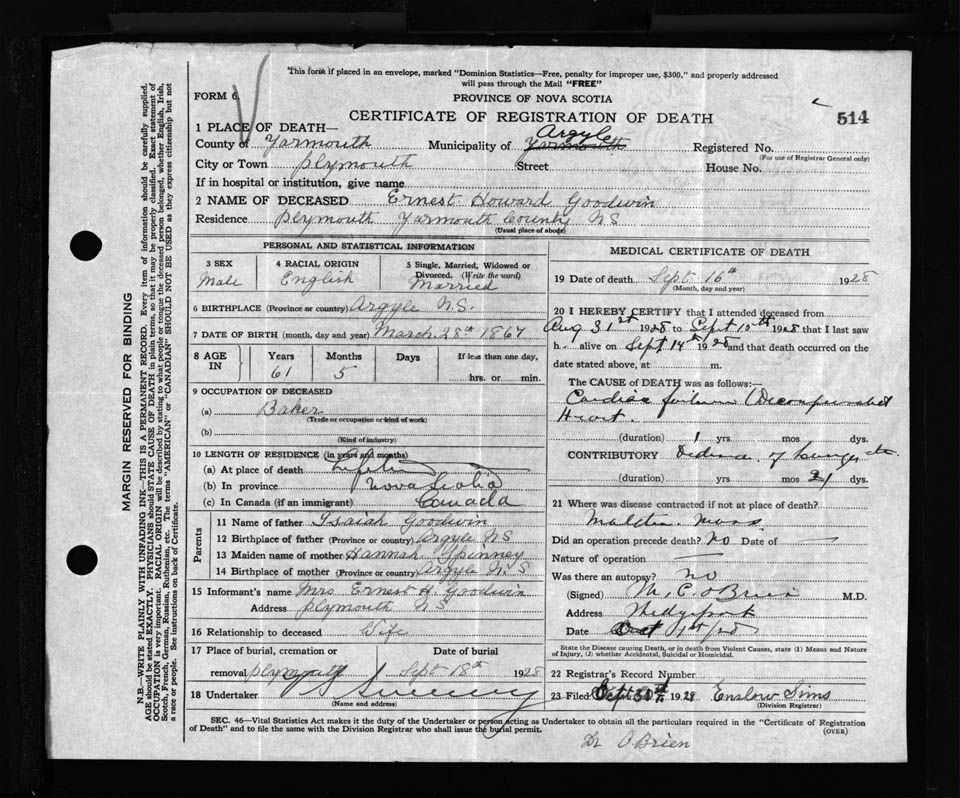 This form if placed in an envelope, marked "Dominion Statistics—Free, penalty for improper use, $300," and properly addressed
will pass through the Mail "FREE"
FORM 6.
PROVINCE OF NOVA SCOTIA
CERTIFICATE OF REGISTRATION OF DEATH
514
1 PLACE OF DEATH—
County of Yarmouth Municipality of Yarmouth Argyle Registered No.
(For use of Registrar General only)
City or Town Plymouth Street House No.
If in hospital or institution, give name
2 NAME OF DECEASED Ernest Howard Goodwin
Residence Plymouth Yarmouth County NS
(Usual place of abode)
PERSONAL AND STATISTICAL INFORMATION
3 SEX 4 RACIAL ORIGIN 5 Single, Married, Widowed or
Divorced. (Write the word)
Male English Married
6 BIRTHPLACE (Province or country) Argyle N.S.
7 DATE OF BIRTH (month, day and year) March 28th 1867
8 AGE IN Years Months Days If less than one day,
61 5 hrs. or min.
9 OCCUPATION OF DECEASED
(a) Baker
(Trade or occupation or kind of work)
(b)
(Kind of industry)
10 LENGTH OF RESIDENCE (in years and months)
(a) At place of death
(b) In province Nova Scotia
(c) In Canada (if an immigrant) Canada
Parents
11 Name of father Isaiah Goodwin
12 Birthplace of father (Province or country) Argyle NS
13 Maiden name of mother Hannah Spinney
14 Birthplace of mother (Province or country) Argyle N.S
15 Informant's name Mrs Ernest H. Goodwin
Address Plymouth N.S
16 Relationship to deceased Wife
17 Place of burial, cremation or Date of burial
removal Plymouth Sept 18th 1928
18 Undertaker
(Name and address)
MEDICAL CERTIFICATE OF DEATH
19 Date of death Sept 16th 1928
(Month, day and year)
20 I HEREBY CERTIFY that I attended deceased from
Aug 31st 1928 to Sept 15th 1928 that I last saw
h alive on Sept 14th 1928 and that death occurred on the
date stated above, at m.
The CAUSE OF DEATH was as follows:—
Cardiac failure (Decompensated
Heart.
(duration) 1 yrs mos dys.
CONTRIBUTORY of lungs etc
(duration) yrs mos 21 dys.
21 Where was disease contracted if not at place of death?
Malden Mass
Did an operation precede death? No Date of
Nature of operation
Was there an autopsy? no
(Signed) M. C. O'Brien M.D.
Address Wedgeport
Date Oct 1st/28
State the Disease causing Death, or in death from Violent Causes, state (1) Means and Nature
of Injury, (2) whether Accidental, Suicidal or Homicidal.
22 Registrar's Record Number
23 Filed Sept 30th 1928 Enslow Sims
(Division Registrar)
SEC. 46—Vital Statistics Act makes it the duty of the Undertaker or person acting as Undertaker to obtain all the particulars required in the "Certificate of Registration
of Death" and to file the same with the Division Registrar who shall issue the burial permit. (OVER)
Dr O'Brien
MARGIN RESERVED FOR BINDING
N.B.—WRITE PLAINLY WITH UNFADING INK—THIS IS A PERMANENT RECORD. Every item of information should be carefully supplied.
AGE should be stated EXACTLY. PHYSICIANS should STATE CAUSE OF DEATH in plain terms, so that it may be properly classified. Exact statement of
OCCUPATION is very important. RACIAL ORIGIN will be described by stating to what people or tongue the deceased person belonged, whether English, Irish,
Scotch, French, German, Russian, Ruthenian, etc. The terms "AMERICAN" or "CANADIAN" SHOULD NOT BE USED as they express citizenship but not
a race or people. See instructions on back of Certificate.